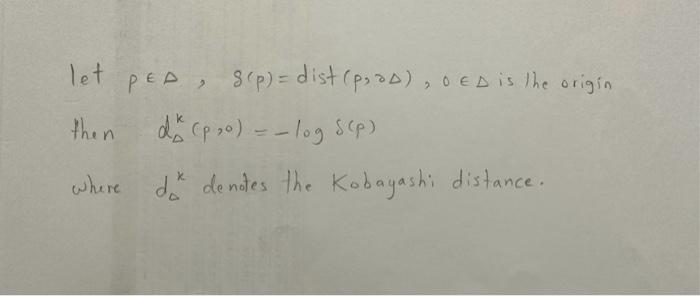 let p ∈ Δ , δ(p) = dist(p, ∂Δ) , 0 ∈ Δ is the origin
then d_Δ^K (p, 0) = - log δ(p)
where d_Δ^K denotes the Kobayashi distance.